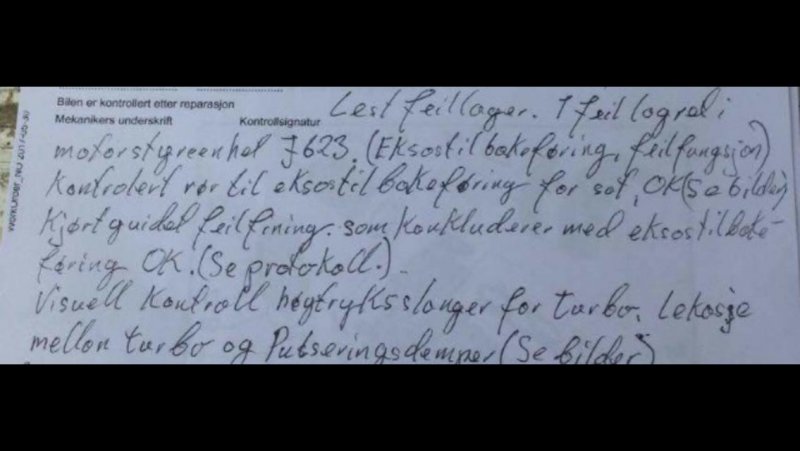 Bilen er kontrollert etter reparasjon
Mekanikers underskrift Kontrollsignatur Lest feillager. 1 feil lagret i
motorstyreenhet J623. (Eksostilbakeføring, feilfungsjon)
Kontrolert rør til eksostilbakeføring for sot, OK(Se bilder)
Kjørt guidet feilfining. som konkluderer med eksostilbake-
føring OK. (Se protokoll.)
Visuell kontroll høgtryksslanger for turbo. Lekasje
mellon turbo og Putseringsdemper (Se bilder)
WorkOrder_NO 2017-05-30